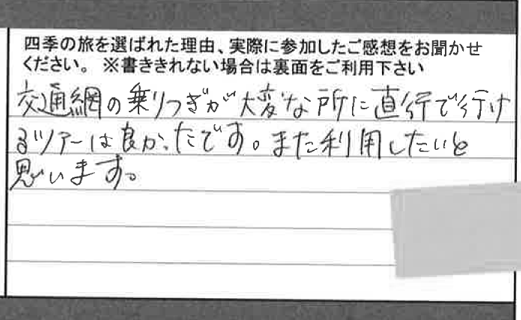 四季の旅を選ばれた理由、実際に参加したご感想をお聞かせ
ください。 ※書ききれない場合は裏面をご利用下さい
交通網の乗りつぎが大変な所に直行で行け
るツアーは良かったです。また利用したいと
思います。